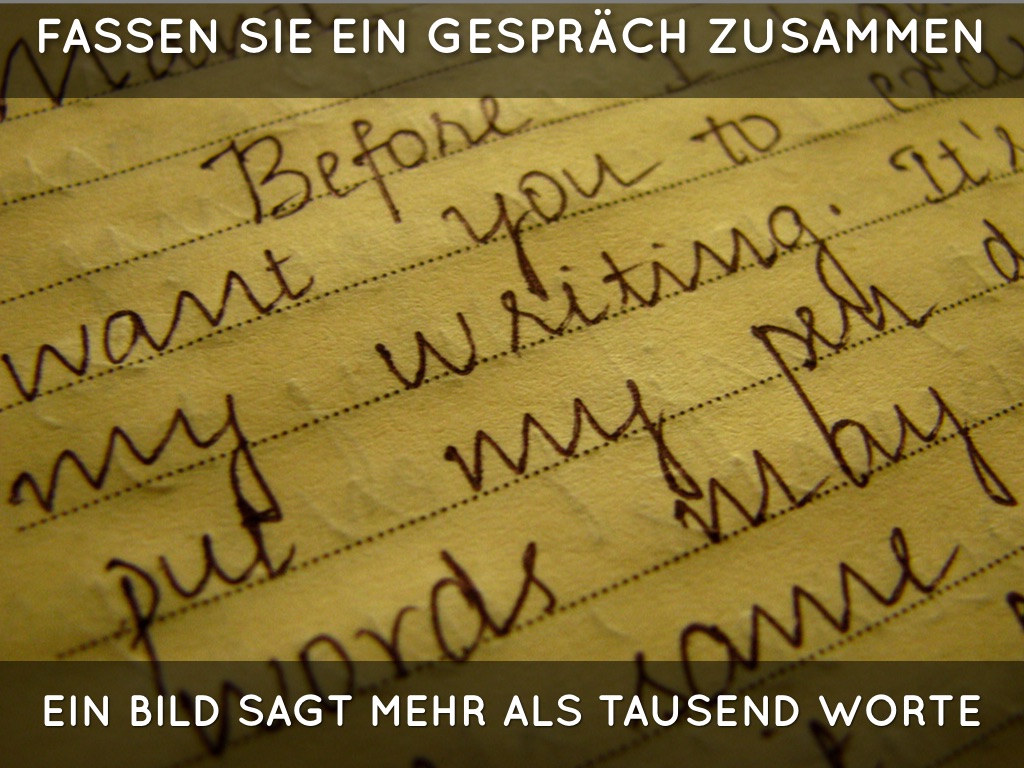 FASSEN SIE EIN GESPRÄCH ZUSAMMEN
Before I
want you to
my writing. It's
put my pen
words may
same
EIN BILD SAGT MEHR ALS TAUSEND WORTE